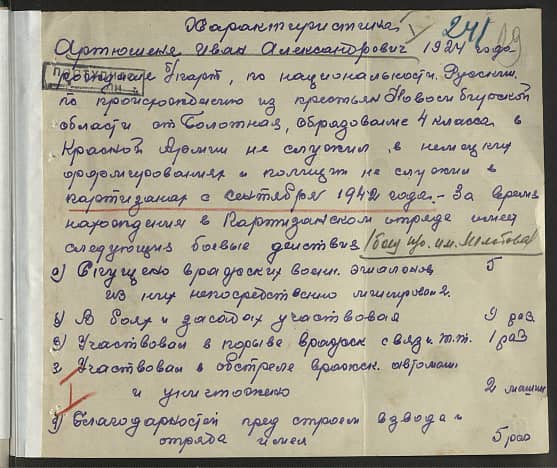 Характиристика
241
Артюшеня Иван Александрович 1924 года
рождение б/парт, по национальности Русский
по происхождению из крестьян Новосибирской
области ст Болотная, образование 4 класса в
Красной Армии не служил, в немецких
формированиях и полиции не служил в
партизанах с сентября 1942 года. - За время
нахождения в Партизанском отряде имеет
следующих боевые действия /боец
а) Спущено вражоских воен. эшалонов 5
из них непосредственно минировал 2.
в) в боях и засадах участвовал 9 раз
з) Участвовал в порыве вражоск связи т.т. 1 раз
з Участвовал в обстреле вражск. автомаш
и уничтожено 2 машин
Благодарностей пред строем взвода и
отряда имел 5 раз